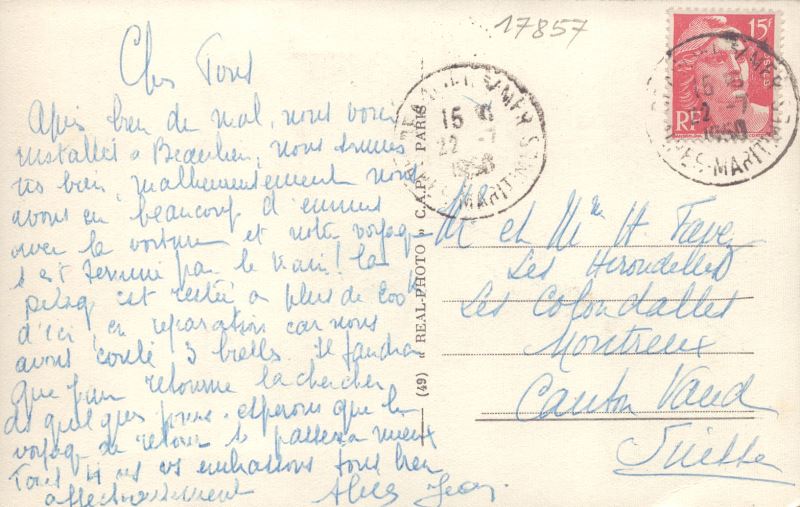 17857
15F
POSTES
RF
BEAULIEU S/MER
15 H
22 -7
1950
ALPES-MARITIMES
Chers Tous
Après bien du mal, nous voici
installés à Beaulieu, nous sommes
très bien, malheureusement nous
avons eu beaucoup d'ennuis
avec la voiture et notre voyage
s'est terminé par le train! la
est restée à plus de 200 k
d'ici en réparation car nous
avons coulé 3 bielles. Il faudra
que Jean retourne la chercher
ds quelques jours. espérons que le
voyage de retour se passera mieux
Tous vs embrassons tous bien
affectueusement Jean.
Mr et Mme H. Favez
Les Hirondelles
Les Colondalles
Montreux
Canton Vaud
Suisse
(49) « REAL-PHOTO » C.A.P. - PARIS